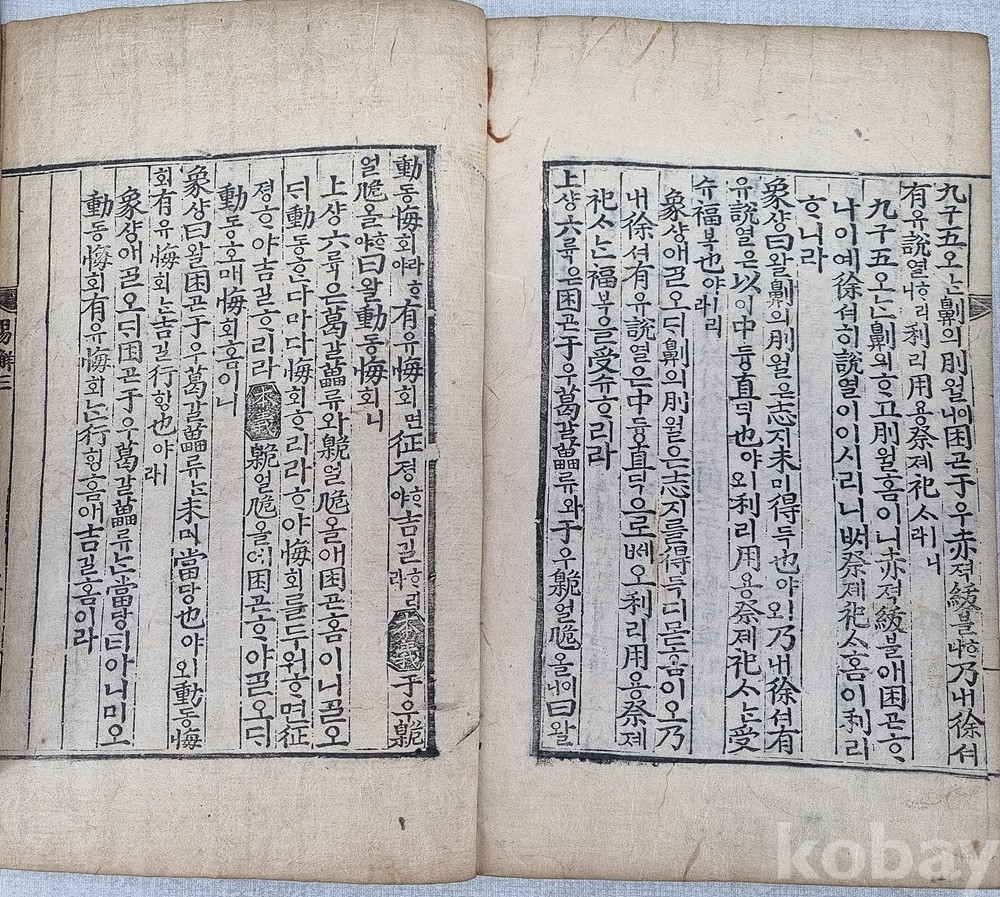 九구五오ᄂᆞᆫ劓의刖월이니困곤于우赤젹紱블ᄒᆞ나乃내徐셔
有유說열ᄒᆞ리니利리用용祭졔祀ᄉᆞㅣ니라
九구五오ᄂᆞᆫ劓의ᄒᆞ고刖월홈이니赤젹紱블애困곤ᄒᆞ
나이예徐셔히說열이이시리니ᄡᅥ祭졔祀ᄉᆞ홈이利리
ᄒᆞ니라
象샹曰왈劓의刖월은志지未미得득也야ㅣ오乃내徐셔有
유說열은以이中듕直딕也야ㅣ오利리用용祭졔祀ᄉᆞᄂᆞᆫ受
슈福복也야ㅣ라
象샹애ᄀᆞᆯ오ᄃᆡ劓의刖월은志지를得득디몯홈이오乃
내徐셔有유說열은中듕直딕으로ᄡᅦ오利리用용祭졔
祀ᄉᆞᄂᆞᆫ福복을受슈ᄒᆞ리라
上샹六륙은困곤于우葛갈藟류와于우臲얼卼올이니曰왈
動동悔회라ᄒᆞ야有유悔회면征졍ᄒᆞ야吉길ᄒᆞ리라本義于우臲
얼卼올ᄒᆞ야曰왈動동悔회니
上샹六륙은葛갈藟류와臲얼卼올애困곤홈이니ᄀᆞᆯ오
ᄃᆡ動동ᄒᆞᆫ다마다悔회ᄒᆞ리라ᄒᆞ야悔회를두워ᄒᆞ면征
졍ᄒᆞ야吉길ᄒᆞ리라本義臲얼卼올에困곤ᄒᆞ야ᄀᆞᆯ오ᄃᆡ
動동호매悔회홈이니
象샹曰왈困곤于우葛갈藟류ᄂᆞᆫ未미當당也야ㅣ오動동悔
회有유悔회ᄂᆞᆫ吉길行ᄒᆡᆼ也야ㅣ라
象샹애ᄀᆞᆯ오ᄃᆡ困곤于우葛갈藟류ᄂᆞᆫ當당티아니미오
動동悔회有유悔회ᄂᆞᆫ行ᄒᆡᆼ홈애吉길홈이라
易解二
kobay